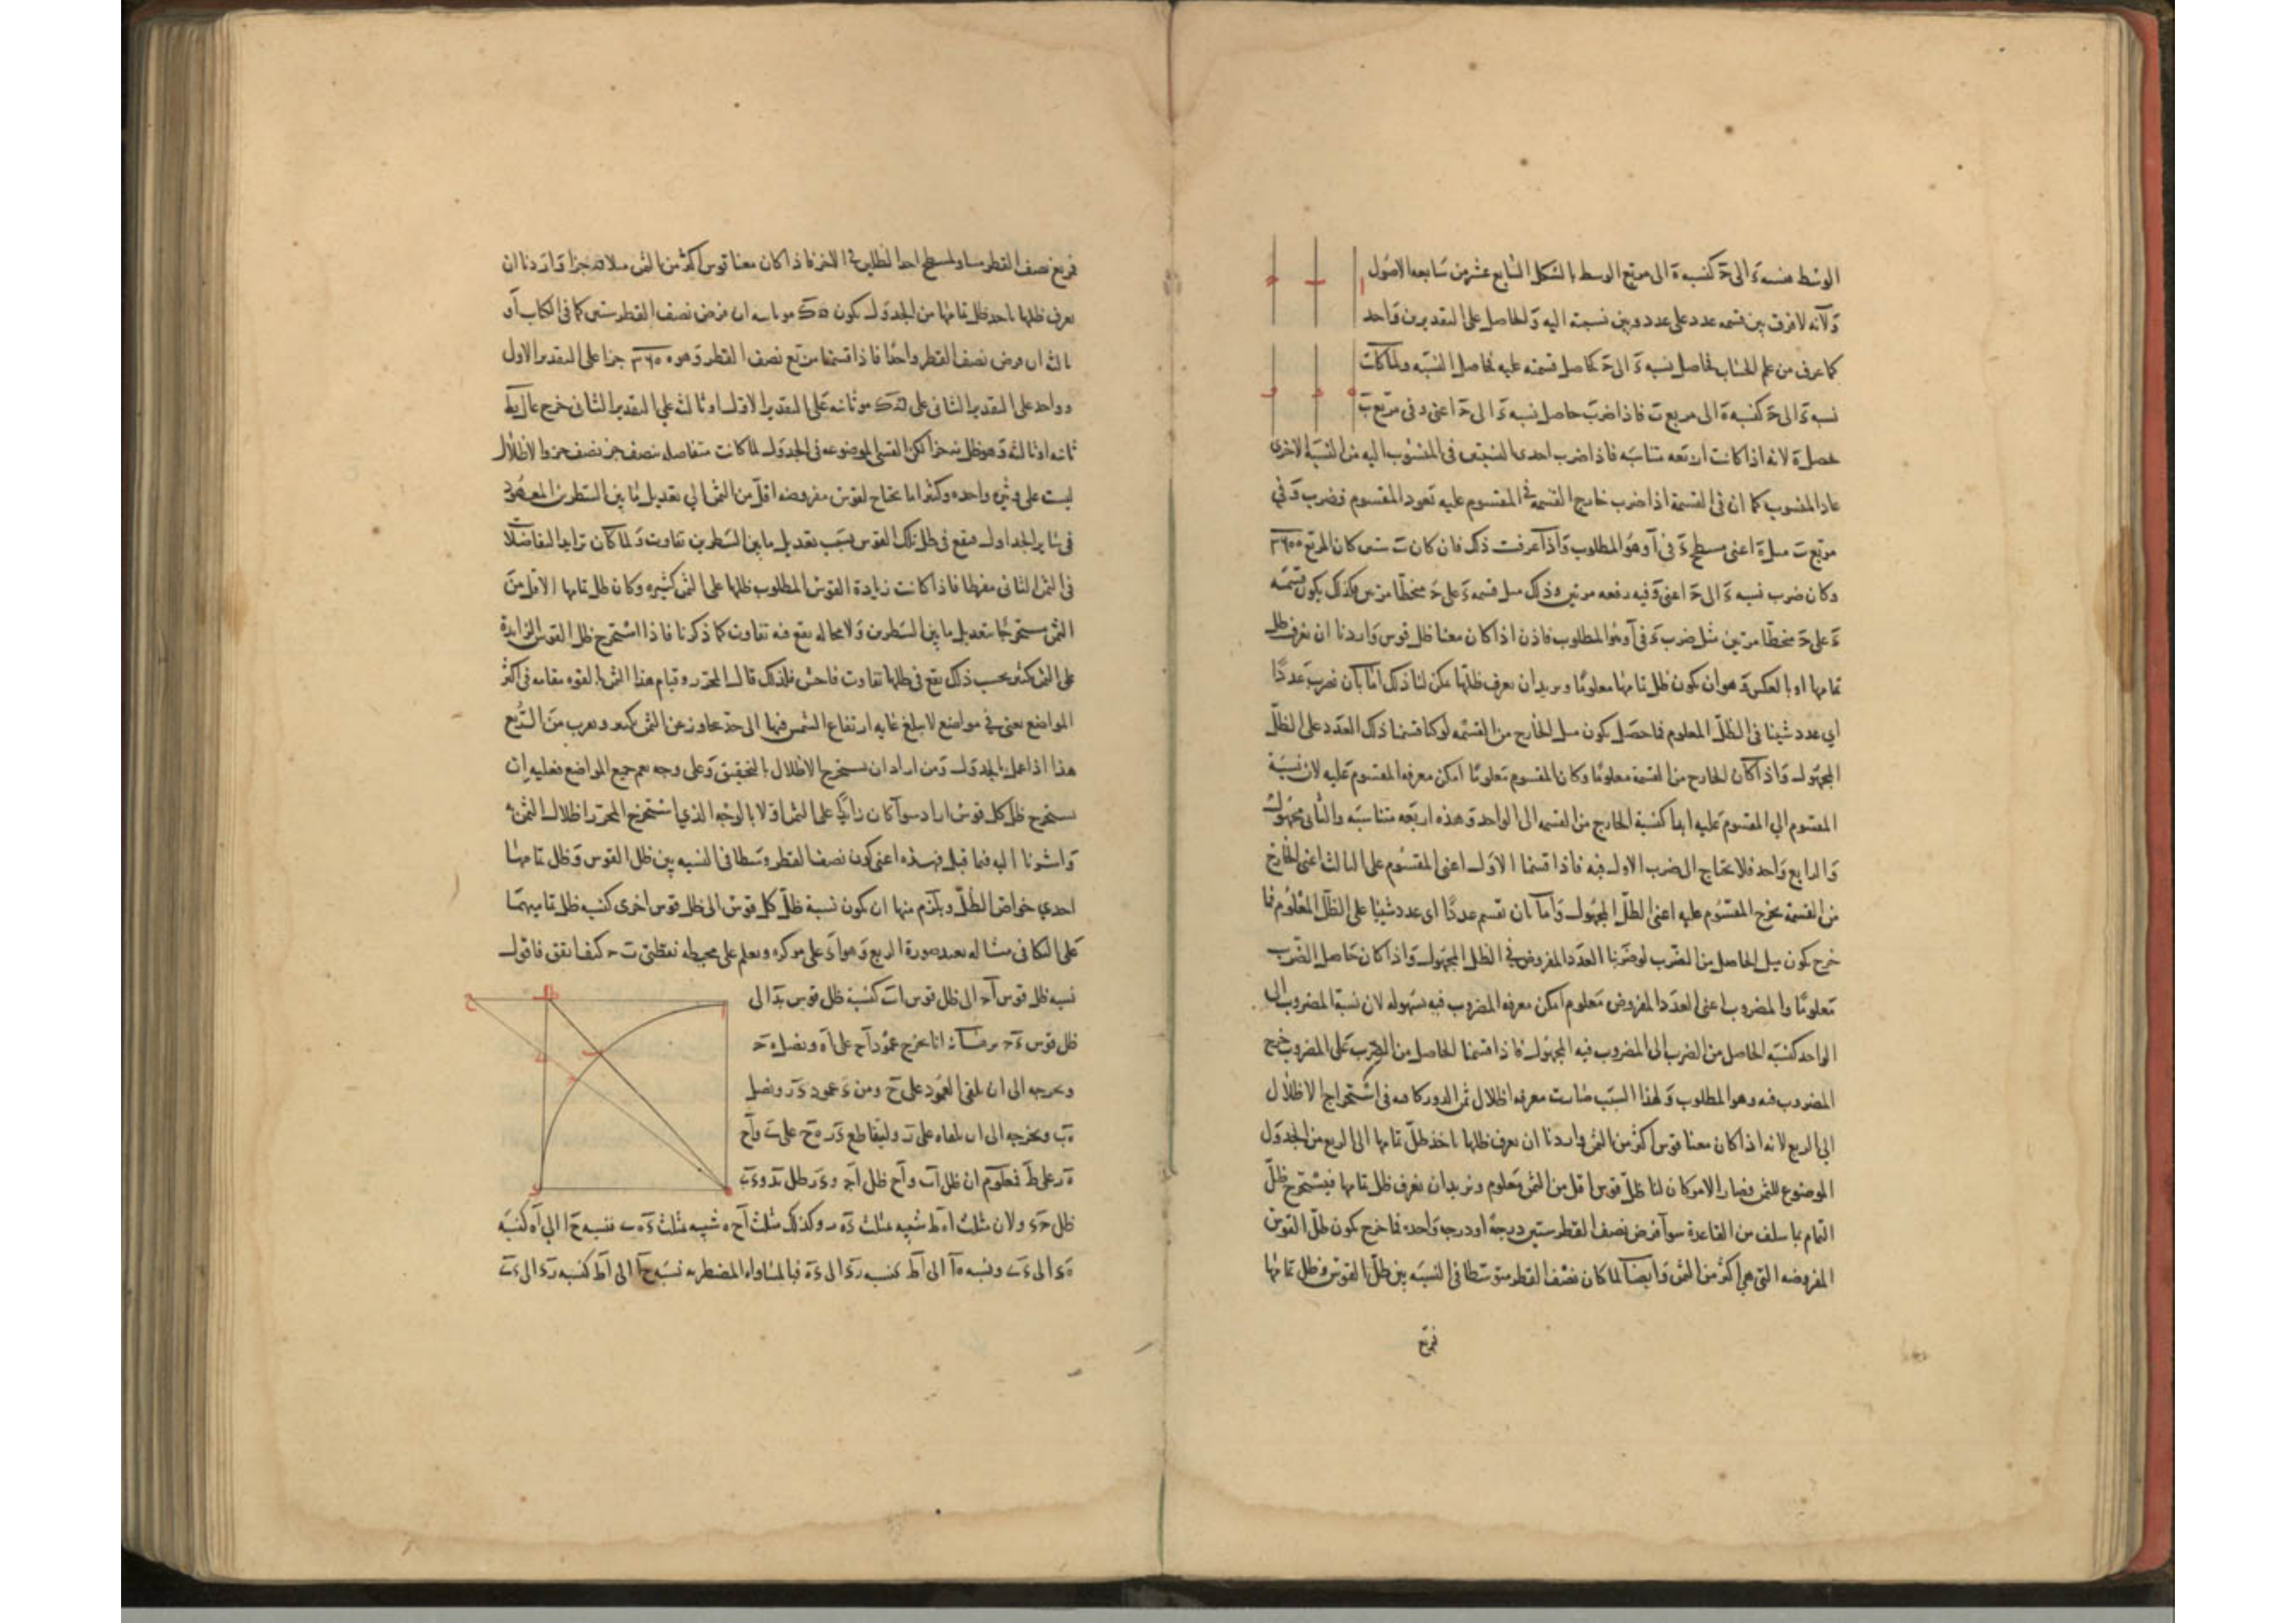 الوسط فنسبة ءَ الى حَ كنسبة ةَ الى مربع الوسط بالشكل السابع عشر من سابعه الاصول
وَلانه لا فرق بين قسمه عدد على عدد وبين نسبته اليه وَالحاصل على التقديرين وَاحد
كما عرف من علم الحساب فحاصل نسبه ءَ الى حَ كحاصل قسمته عليه فحاصل النسبه ولما كانت
نسبه ءَ الى حَ كنسبه ةَ الى مربع بَ فاذا ضرب حاصل نسبه ءَ الى حَ اعنى وَ فى مربع بَ
حصل ةَ لانه اذا كانت اربعه متناسبه فاذا ضرب احدى النسبتين فى المنسوب اليه من النسبة الاخرى
عاد المنسوب كما ان فى القسمة اذا ضرب خارج القسمة فى المقسوم عليه تعود المقسوم فضرب وَ فى
مربع بَ مثل ةَ اعنى مسطح ءَ فى اَ وهُو المطلوب وَاذا عرفت ذلك فان كان بَ ستين كان المربع ٣٦٠٠
وكان ضرب نسبه ءَ الى حَ اعنى وَ فيه رفعه مرتين وذلك مثل قسمه ءَ على حَ منحطا مرتين فكذلك يكون قسمة
ءَ على حَ منحطًا مرتين مثل ضرب ءَ فى اَ وهُو المطلوب فاذن اذا كان معنا ظل قوس وَاردنا ان نعرف ظل
تمامها او بالعكس وَهو ان يكون ظل تمامها معلومًا ونريد ان نعرف ظلها يمكن لنا ذلك امّا بأن نضرب عددًا
اي عدد شينا فى الظلّ المعلوم فما حصل يكون مثل الخارج من القسمه لو كنا قسمنا ذلك العدد على الظلّ
المجهول وَاذا كان الخارج من القسمة معلومًا وكان المقسوم معلومًا امكن معرفه المقسوم عليه لان نسبة
المقسوم الي المقسوم عليه ابدا كنسبة الخارج من القسمه الى الواحد وَهذه اربعه متناسبه والثانى مجهول
وَالرابع وَاحد فلا يحتاج الى ضرب الاول فيه فاذا قسمنا الاوَل اعنى المقسوم على الثالث اعنى الخارج
من القسمة يخرج المقسوم عليه اعنى الظلّ المجهول وَاما بان نقسم عددًا اى عدد شينا على الظلّ المعلوم فما
خرج يكون مثل الحاصل من الضرب لو ضربنا العدد المفروض فى الظل المجهول وَاذا كان حَاصل الضرب
معلومًا والمضروب اعنى العدد المفروض معلوم امكن معرفه المضروب فيه بسهوله لان نسبة المضروب الى
الواحد كنسبه الحاصل من الضرب الى المضروب فيه المجهول فاذا قسمنا الحاصل من الضرب على المضروب خرج
المضروب فيه وهو المطلوب وَلهذا السبب صارت معرفه اظلال ثمن الدور كافيه فى استخراج الاظلال
الي الربع لانه اذا كان معنا قوس اكثر من الثمن واردنا ان نعرف ظلها ناخذ ظلّ تمامها الى الربع من الجدوَل
الموضوع للثمن فصار الامر كان لنا ظلّ قوس اقل من الثمن معلوم ونريد ان نعرف ظل تمامها فيستخرج ظلّ
التمام بما سلف من القاعدة سوآ فرض نصف القطر ستين درجةً او درجه وَاحدة فما خرج يكون ظلّ القوس
المفروضه التى هي اكثر من الثمن وَايضًا لما كان نصف القطر متوسطا فى النسبه بين ظلّ القوس وظل تمامها
فمربع
فمربع نصف القطر مساو لمسطح احد الظلين فى الاخر فاذا كان معنا قوس اكثر من الثمن مثلا جزا وَاردنا ان
نعرف ظلها ناخذ ظل تمامها من الجدوَل يكون ثانيه ان فرض نصف القطر ستين كما فى الكتاب اَو
ثالثه ان فرض نصف القطر واحدًا فاذا قسمنا مربع نصف القطر وَهو ٣٦٠٠ جزا على التقدير الاول
وواحد على التقدير الثانى على ثانيه على التقدير الاوَل او ثالثه علي التقدير الثانى خرج
ثانيه او ثالثه وَهو ظل جزا لكن القسى الموضوعه فى الجدوَل لما كانت متفاصله بنصف جز نصف جز والاظلال
ليست على وتيرة واحده وكثيرا ما نحتاج لقوس مفروضه اقلّ من الثمن الي تعديل ما بين السطرين المعهود
فى سَاير الجداول فيقع فى ظل تلك القوس بسَبب تعديل ما بين السَطرين تفاوت وَلما كان تزايد التفاضلات
فى الثمن الثانى مفرطا فاذا كانت زيادة القوس المطلوب ظلها على الثمن كثيره وكان ظل تمامها الاقل من
الثمن مستخرجًا بتعديل ما بين السَطرين وَلا محاله يقع فيه تفاوت كما ذكرنا فاذا استخرج ظل القوس الزايدة
على الثمن بكثير بحسب ذلك يقع فى ظلها تفاوت فاحش فلذلك قال المحرر وقيام هذا الثمن بالقوه مقامه فى اكثر
المواضع يعنى فى مواضع لا يبلغ غايه ارتفاع الشمس فيها الى حد يتجاوز عن الثمن بكثير ويقرب من الربع
هذا اذا عمل بالجدوَل وَمن اراد ان يستخرج الاظلال بالتحقيق وَعلى وجه يعم جميع المواضع فعليه ان
يستخرج ظل كل قوس اراد سوآ كان زايدًا على الثمن اوَ لا بالوجه الذي استخرج المحرر اظلال الثمن به
وَاشرنا اليه فيما قبل فهذه اعنى كون نصف القطر وسطا فى النسبه بين ظل القوس وَظل تمامها
احدي خواص الظلّ ويلزم منها ان يكون نسبة ظلّ كل قوس الى ظل قوس اخرى كنسبه ظل تماميهما
على التكافى مثاله نعيد صورة الربع وَهو اءَ على مركز ه ونعلم على محيطه نقطتى بَ حَ كيف اتفق فاقول
نسبه ظل قوس اَحَ الى ظل قوس اَبَ كنسبة ظل قوس بءَ الى
ظل قوس ءَحَ برهانه انا نخرج عمود اَحَ على اَه ونصل هَحَ
ونخرجه الى ان يلقى العمود على حَ ومن ءَ عمود ءَرَ ونصل
هَبَ ونخرجه الى ان يلقاه على رَ وليقاطع ءَرَ هَحَ على ىَ وَاَحَ
هَرَ على طَ فمعلوم ان ظل اَبَ وَاَحَ ظل اَحَ وءَرَ ظل بءَ وءَىَ
ظل حَءَ ولان مثلث اهَطَ شبيه بمثلث ءَهَرَ وكذلك مثلث اَحَهَ شبيه بمثلث ءَهَىَ فنسبه حَا الي اَه كنسبة
هَءَ الى ءَىَ ونسبه هَا الى اَطَ كنسبه رَءَ الى ءَهَ فبالمساواه المضطربه نسبَه حَا الى اَطَ كنسبه رَءَ الى ءَىَ